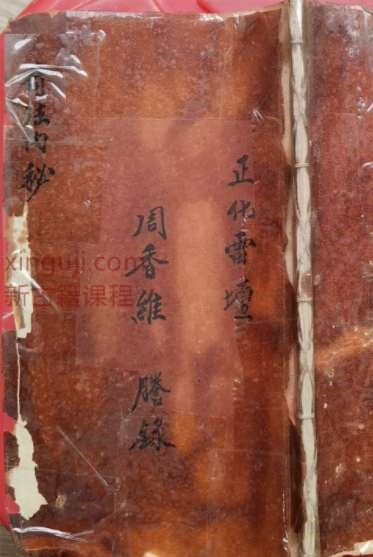 正化雷壇
周香維 謄錄
法内秘
xinguji.com
新古籍课程